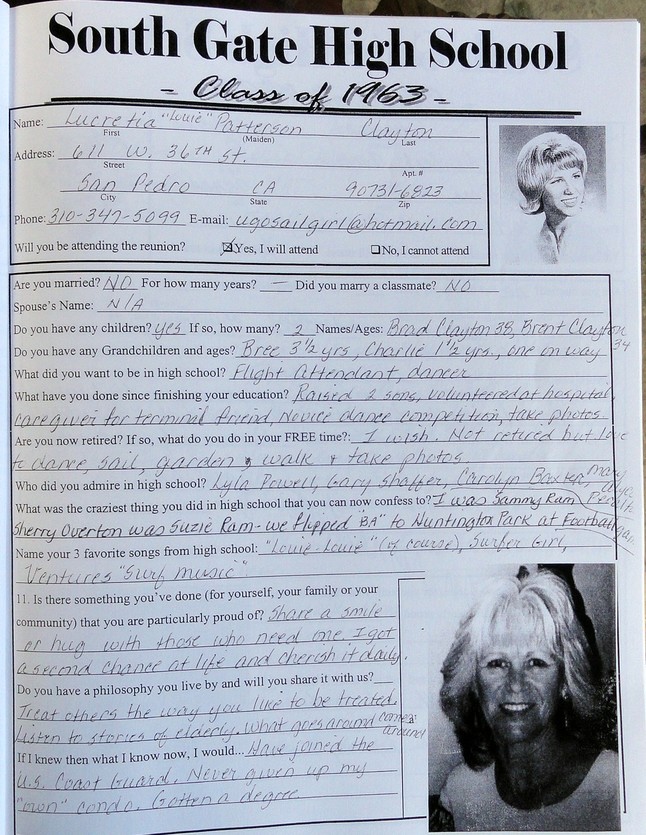 South Gate High School
- Class of 1963 -
Name: Lucretia "Louie" Patterson Clayton
First (Maiden) Last
Address: 611 W. 36TH St.
Street Apt. #
San Pedro CA 90731-6823
City State Zip
Phone: 310-347-5099 E-mail: ugosailgirl@hotmail.com
Will you be attending the reunion? ☒Yes, I will attend ☐No, I cannot attend
Are you married? NO For how many years? — Did you marry a classmate? NO
Spouse's Name: N/A
Do you have any children? yes If so, how many? 2 Names/Ages: Brad Clayton 38, Brent Clayton 34
Do you have any Grandchildren and ages? Bree 3½ yrs, Charlie 1½ yrs., one on way
What did you want to be in high school? Flight Attendant, dancer
What have you done since finishing your education? Raised 2 sons, volunteered at hospital,
caregiver for terminal friend, Novice dance competition, take photos.
Are you now retired? If so, what do you do in your FREE time?: I wish. Not retired but love
to dance, sail, garden, walk & take photos
Who did you admire in high school? Lyla Powell, Gary Shaffer, Carolyn Baxter,
What was the craziest thing you did in high school that you can now confess to? I was Sammy Ram
Sherry Overton was Suzie Ram - we flipped "BA" to Huntington Park at Football
Name your 3 favorite songs from high school: "Louie-Louie" (of course), Surfer Girl,
Ventures "Surf music"
11. Is there something you've done (for yourself, your family or your
community) that you are particularly proud of? Share a smile
or hug with those who need one. I got
a second chance at life and cherish it daily.
Do you have a philosophy you live by and will you share it with us?
Treat others the way you like to be treated.
Listen to stories of elderly. What goes around comes around
If I knew then what I know now, I would... Have joined the
U.S. Coast Guard. Never given up my
"own" condo. Gotten a degree.